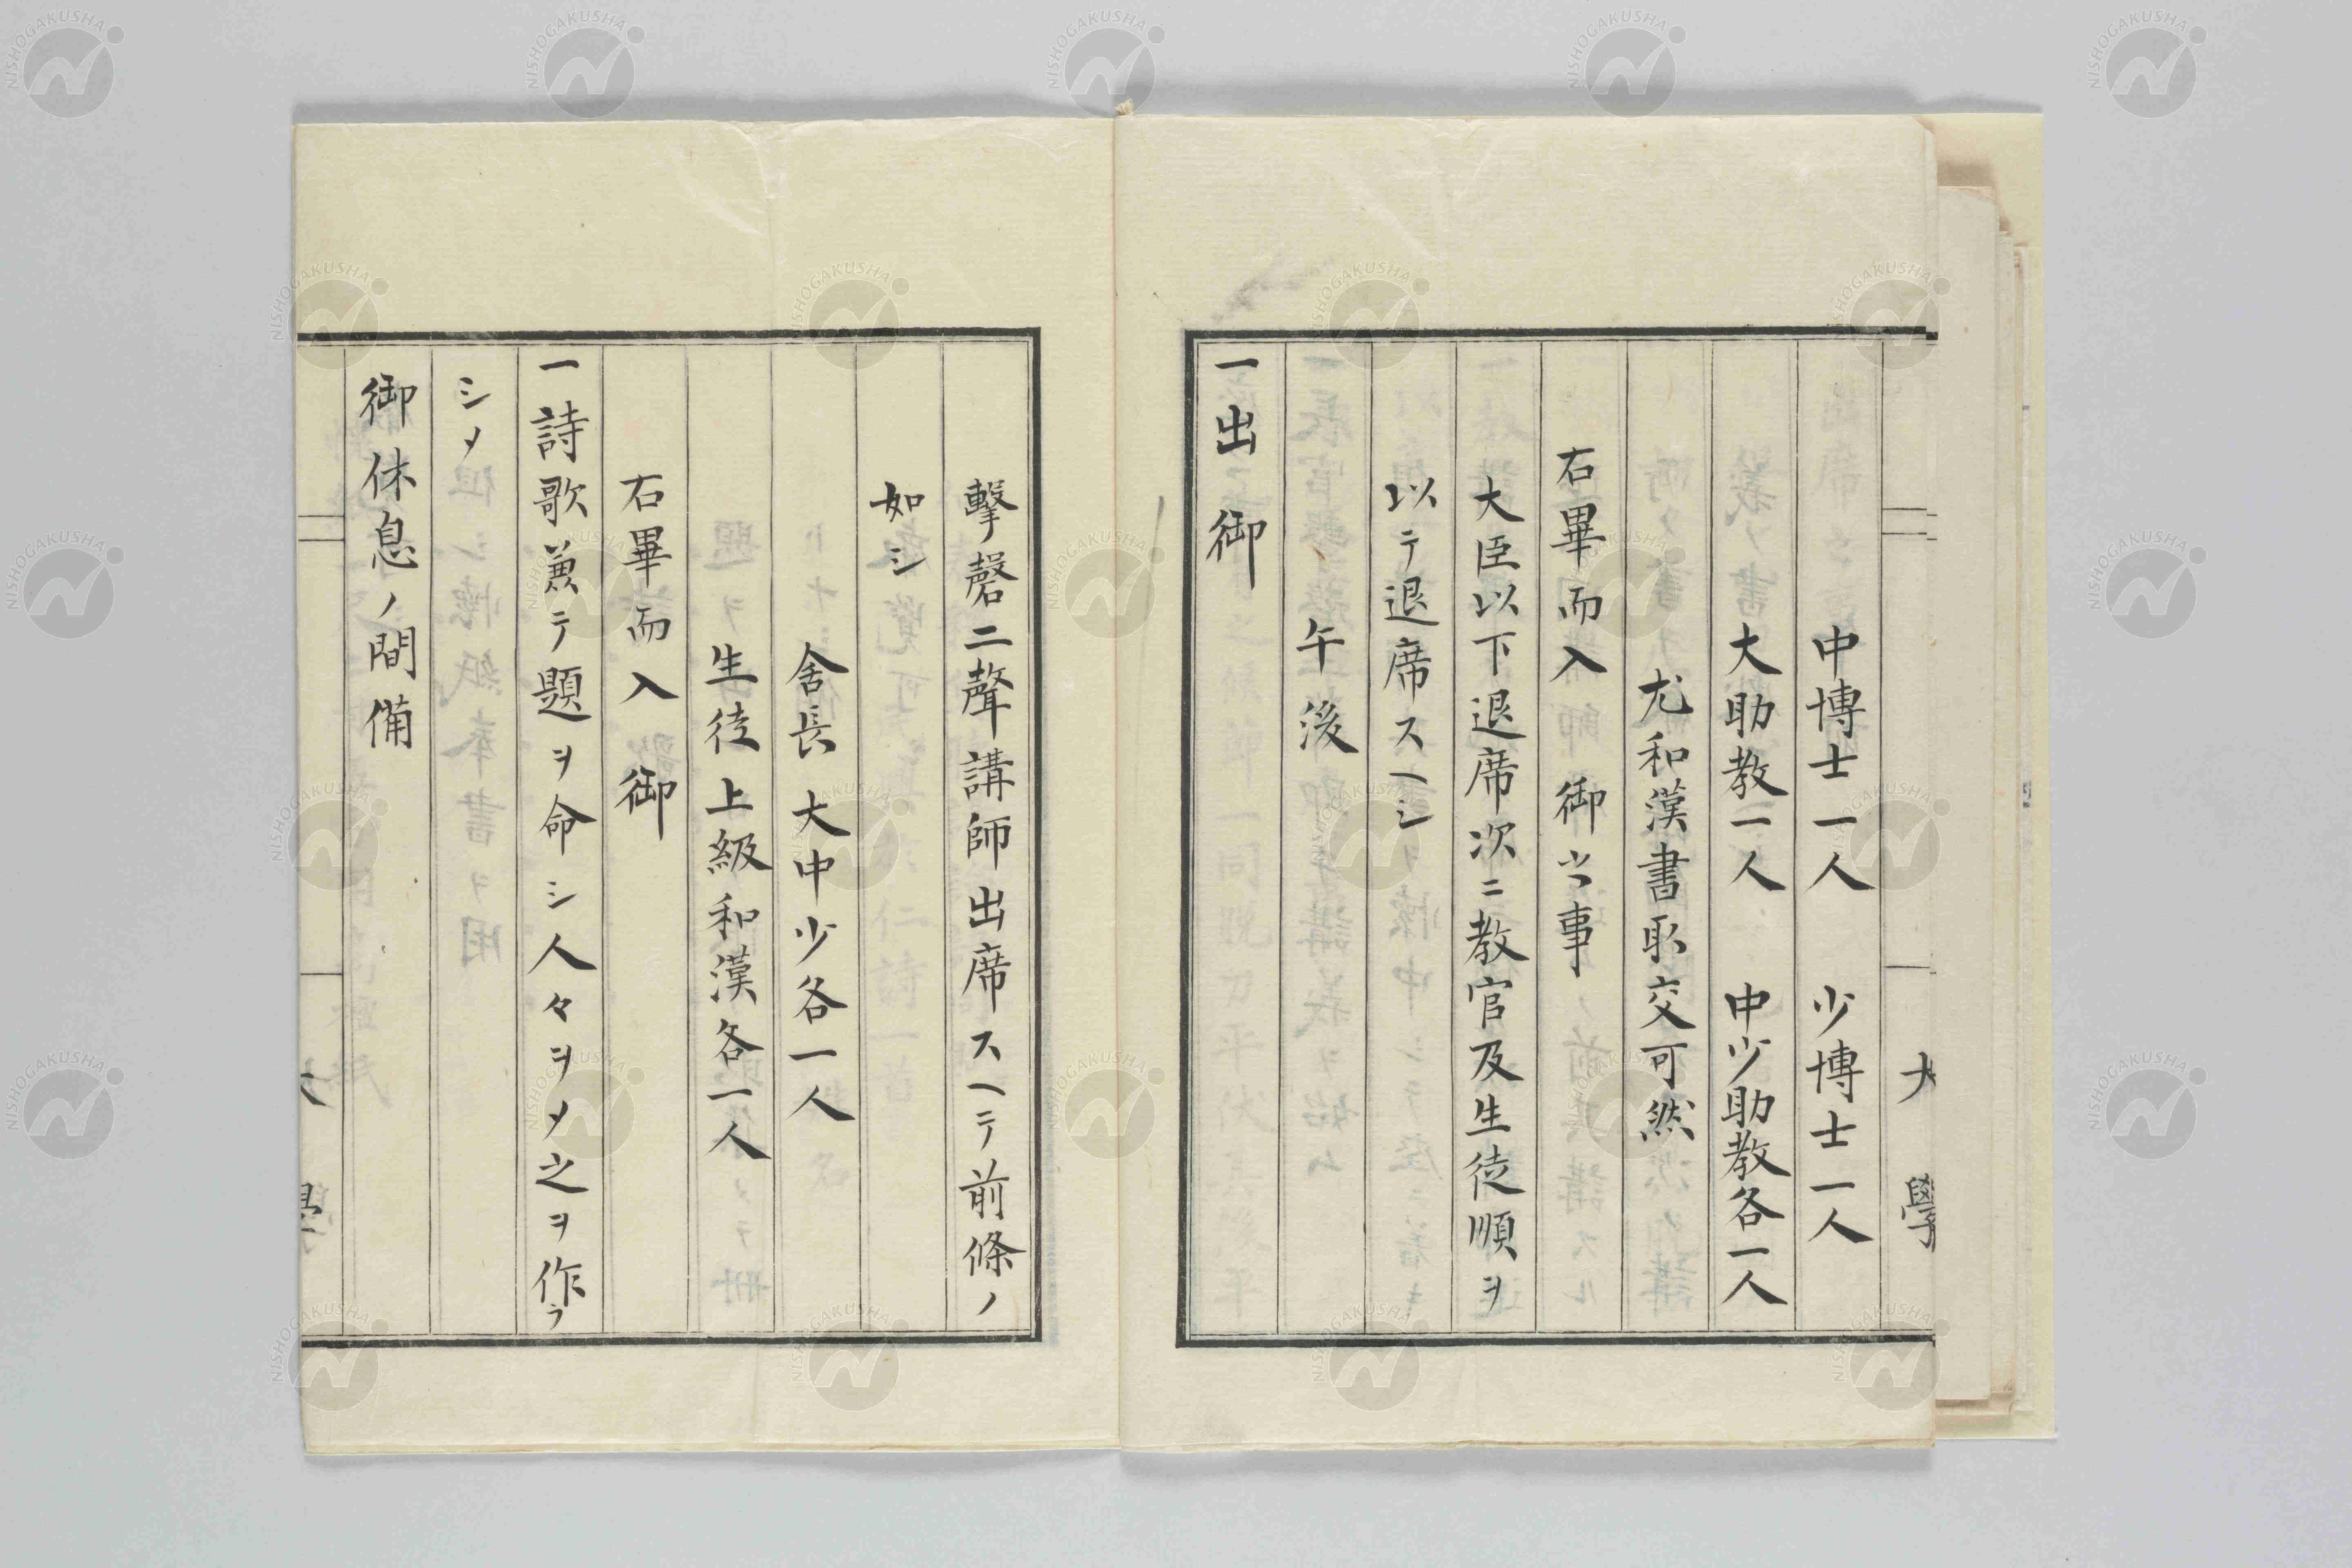 大學
中博士一人　少博士一人
大助教一人　中少助教各一人
尤和漢書取交可然
右畢而入　御当事
大臣以下退席次ニ教官及生徒順ヲ
以テ退席スヘシ
午後
一出御
擊磬二聲講師出席スヘテ前條ノ
如シ
舍長　大中少各一人
生徒上級和漢各一人
右畢而入　御
一詩歌兼テ題ヲ命シ人々ヲメ之ヲ作ラ
シメ
御休息ノ間備
NISHOGAKUSHA